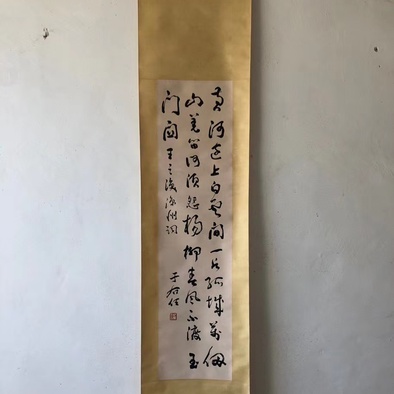 黄河远上白云间一片孤城万仞
山羌笛何须怨杨柳春风不渡玉
门关
王之涣凉州词
于右任